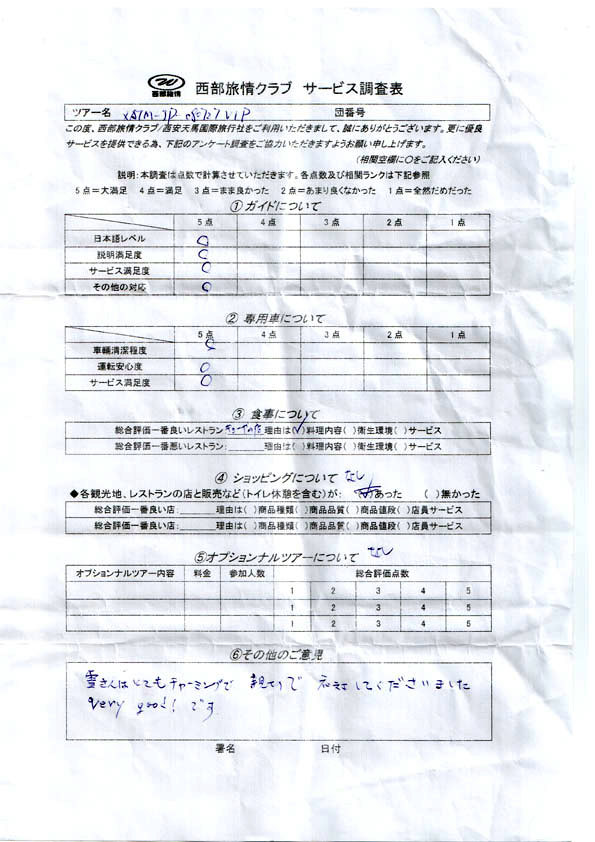 西部旅情
西部旅情クラブ サービス調査表
ツアー名 団番号
この度、西部旅情クラブ/西安天馬国際旅行社をご利用いただきまして、誠にありがとうございます。更に優良
サービスを提供できる為、下記のアンケート調査をご協力いただきますようお願い申し上げます。
(相関空欄に〇をご記入ください)
説明:本調査は点数で計算させていただきます。各点数及び相関ランクは下記参照
5点=大満足 4点=満足 3点=まま良かった 2点=あまり良くなかった 1点=全然だめだった
①ガイドについて
5点 4点 3点 2点 1点
日本語レベル 〇
説明満足度 〇
サービス満足度 〇
その他の対応 〇
② 専用車について
5点 4点 3点 2点 1点
車輛清潔程度 〇
運転安心度 〇
サービス満足度 〇
③ 食事について
総合評価一番良いレストラン: 理由は(✓)料理内容( )衛生環境( )サービス
総合評価一番悪いレストラン:______理由は( )料理内容( )衛生環境( )サービス
④ ショッピングについて なし
◆各観光地、レストランの店と販売など(トイレ休憩を含む)が: あった ( )無かった
総合評価一番良い店:______理由は( )商品種類( )商品品質( )商品値段( )店員サービス
総合評価一番悪い店:______理由は( )商品種類( )商品品質( )商品値段( )店員サービス
⑤オプションナルツアーについて なし
オプションナルツアー内容 料金 参加人数 総合評価点数
1 2 3 4 5
1 2 3 4 5
1 2 3 4 5
⑥その他のご意見
雪さんはとてもチャーミングで 親切で してくださいました
Very good! です
署名 日付